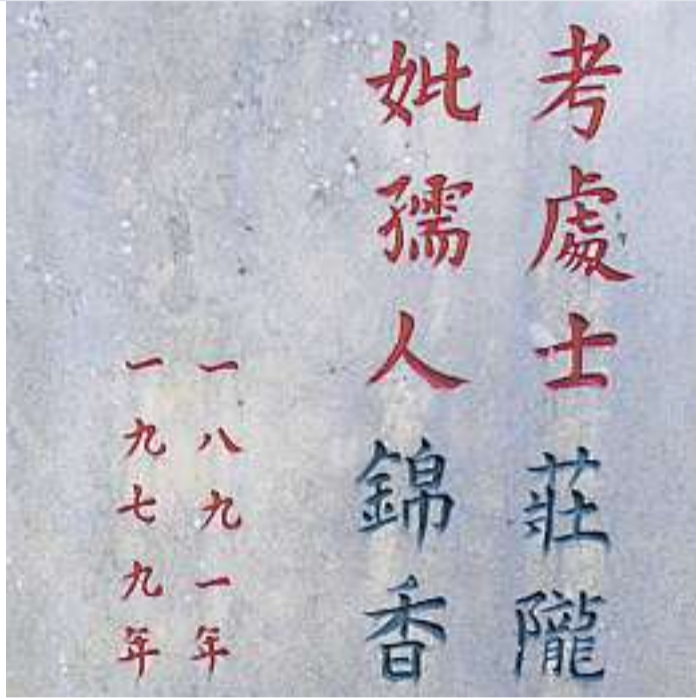 考處士莊隴
妣孺人錦香
一八九一年
一九七九年